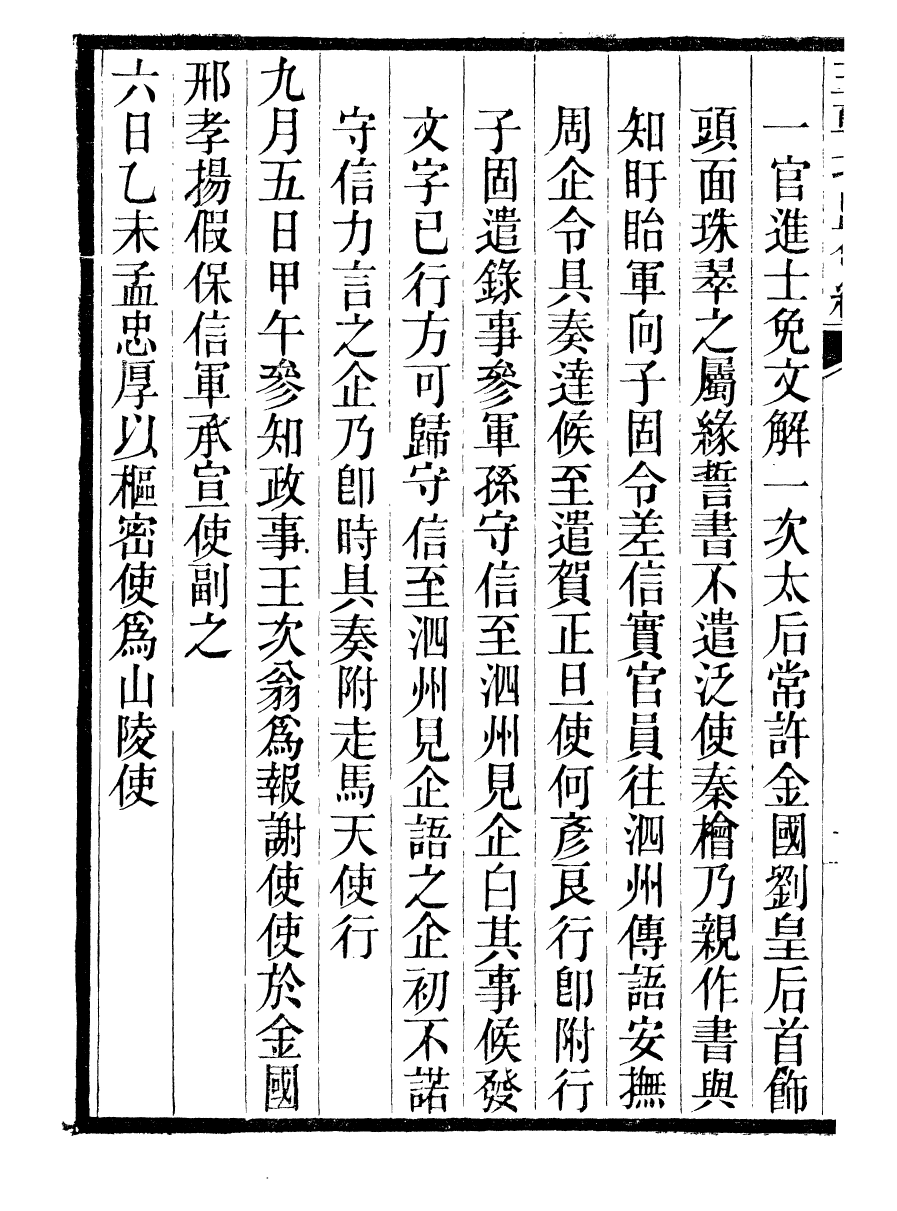 一官進士免文解一次太后常許金國劉皇后首飾
頭面珠翠之屬緣誓書不遣泛使秦檜乃親作書與
知盱眙軍向子固令差信實官員往泗州傳語安撫
周企令具奏達候至遣賀正旦使何彥良行卽附行
子固遣錄事參軍孫守信至泗州見企白其事候發
文字已行方可歸守信至泗州見企語之企初不諾
守信力言之企乃卽時具奏附走馬天使行
九月五日甲午參知政事王次翁爲報謝使使於金國
邢孝揚假保信軍承宣使副之
六日乙未孟忠厚以樞密使爲山陵使